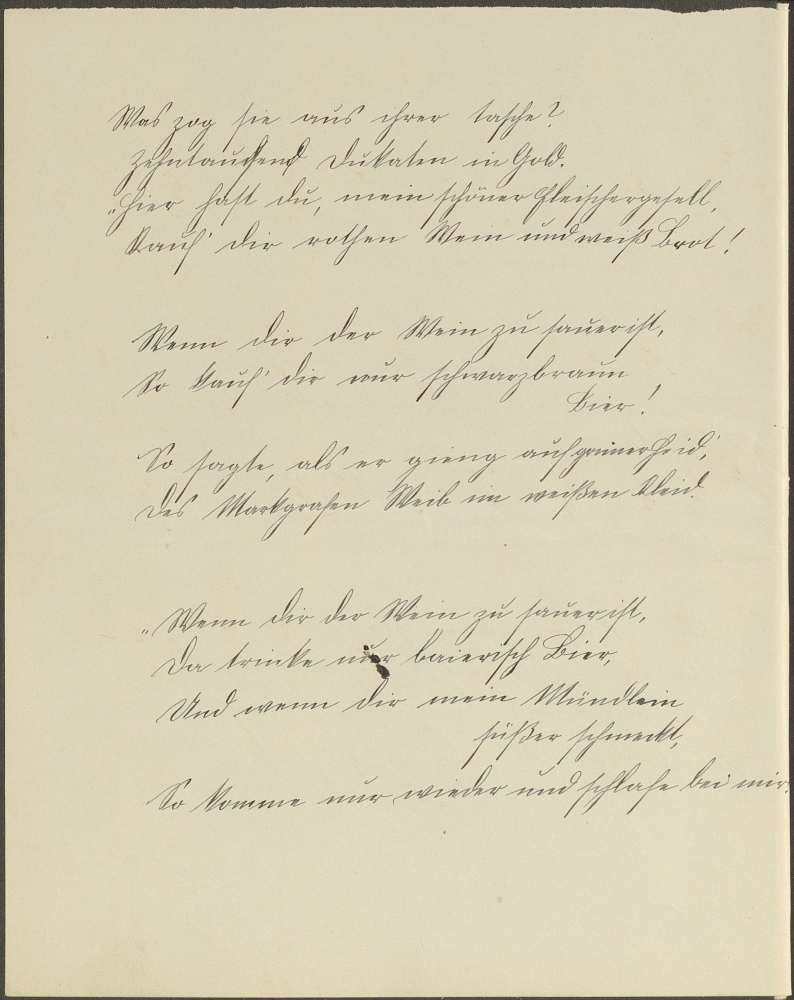 Was zog sie aus ihrer tasche?
Zehntausend Dukaten in Gold.
„Hier hast du, mein schöner Fleischergesell,
Kauf' dir rothen Wein und weiß Brot!
Wenn dir der Wein zu sauer ist,
So kauf' dir nur schwarzbraun
Bier!
So sagte, als er gieng auf grüner Heid',
Des Markgrafen Weib im weißen Kleid.
„Wenn dir der Wein zu sauer ist,
Da trinke nur baierisch Bier,
Und wenn dir mein Mündlein
süßer schmeckt,
So komme nur wieder und schlafe bei mir.